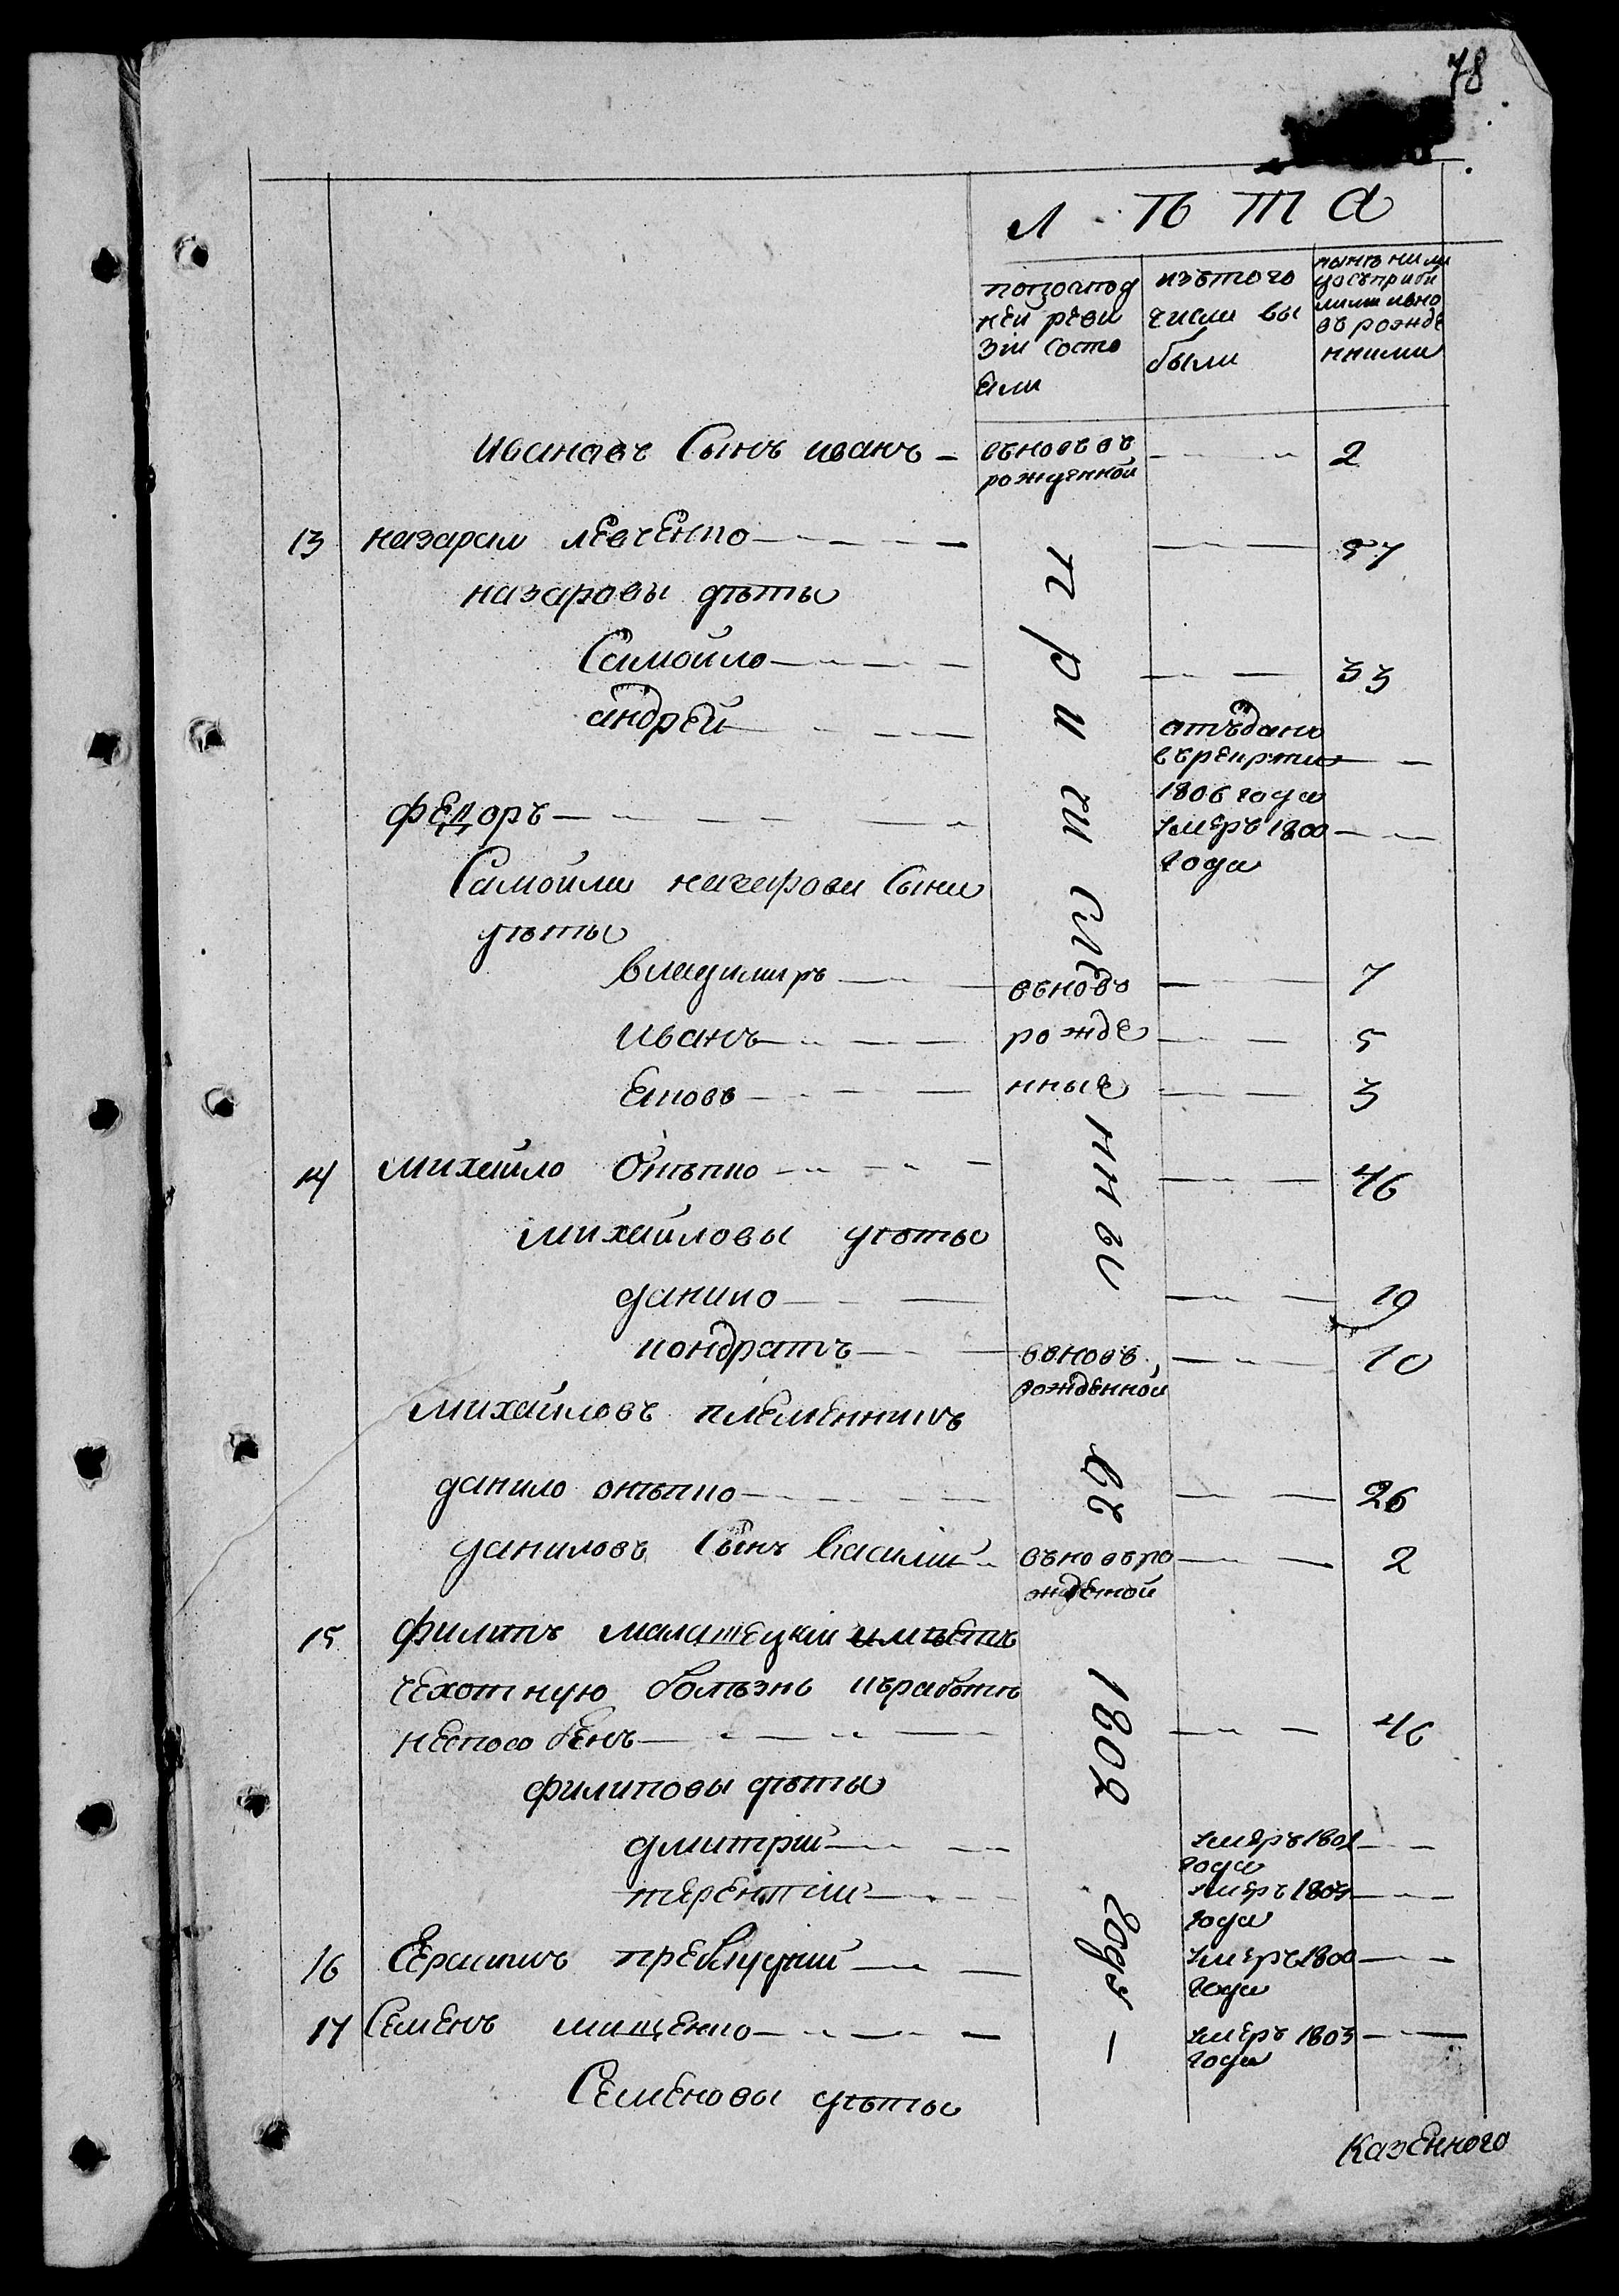 78
лѣта
попослед
ней реви
зіи состо
яли
изътого
числа вы
были
нынѣ нали
цо съприбы
лыми вно
въ рожде
нними
Ивановъ Сынъ иванъ въновъ въ рожденной 2
13 назарай лЕвчЕнко 57
назаровы дѣты
Самойло 33
андрЕй отъданъ върекрты 1806 года
фЕдоръ умеръ 1800 года
Самойла назарова Сына
дѣты
владимиръ вънов 7
Иванъ рожде 5
Яковъ нные 3
14 михайло Онѣпко 46
михайловы дѣты
данило 19
кондратъ вновъ рожденной 10
михайловъ плЕмЕнникъ
данило онѣпко 26
даниловъ Сынъ Василій въновъро жденой 2
15 филипъ малашЕцкій имѣЕтъ
чЕхотную болѣзнь къработѣ
нЕспособЕнъ 46
филиповы дѣты
дмитрій умеръ 1801 года
терЕнтій умеръ 1809 года
16 ГЕрасимъ умеръ 1800 года
17 СЕмЕнъ мищЕнко умеръ 1803 года
СЕмЕновы дѣты
причисленны въ 1802 году
Казенного